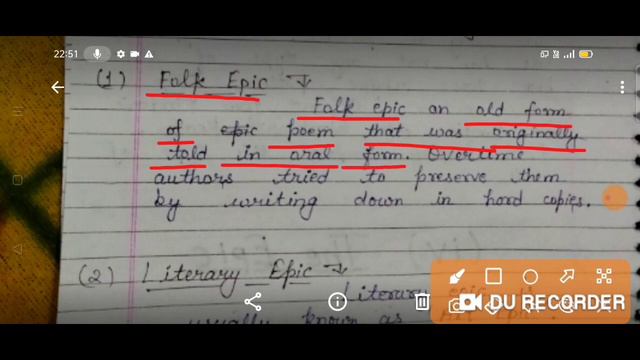 22:51
(1) Folk Epic
Folk epic an old form
of epic poem that was originally
told in oral form. Overtime
authors tried to preserve them
by writing down in hord copies.
(2) Literary Epic
Literary epic is
usually known as
DU RECORDER